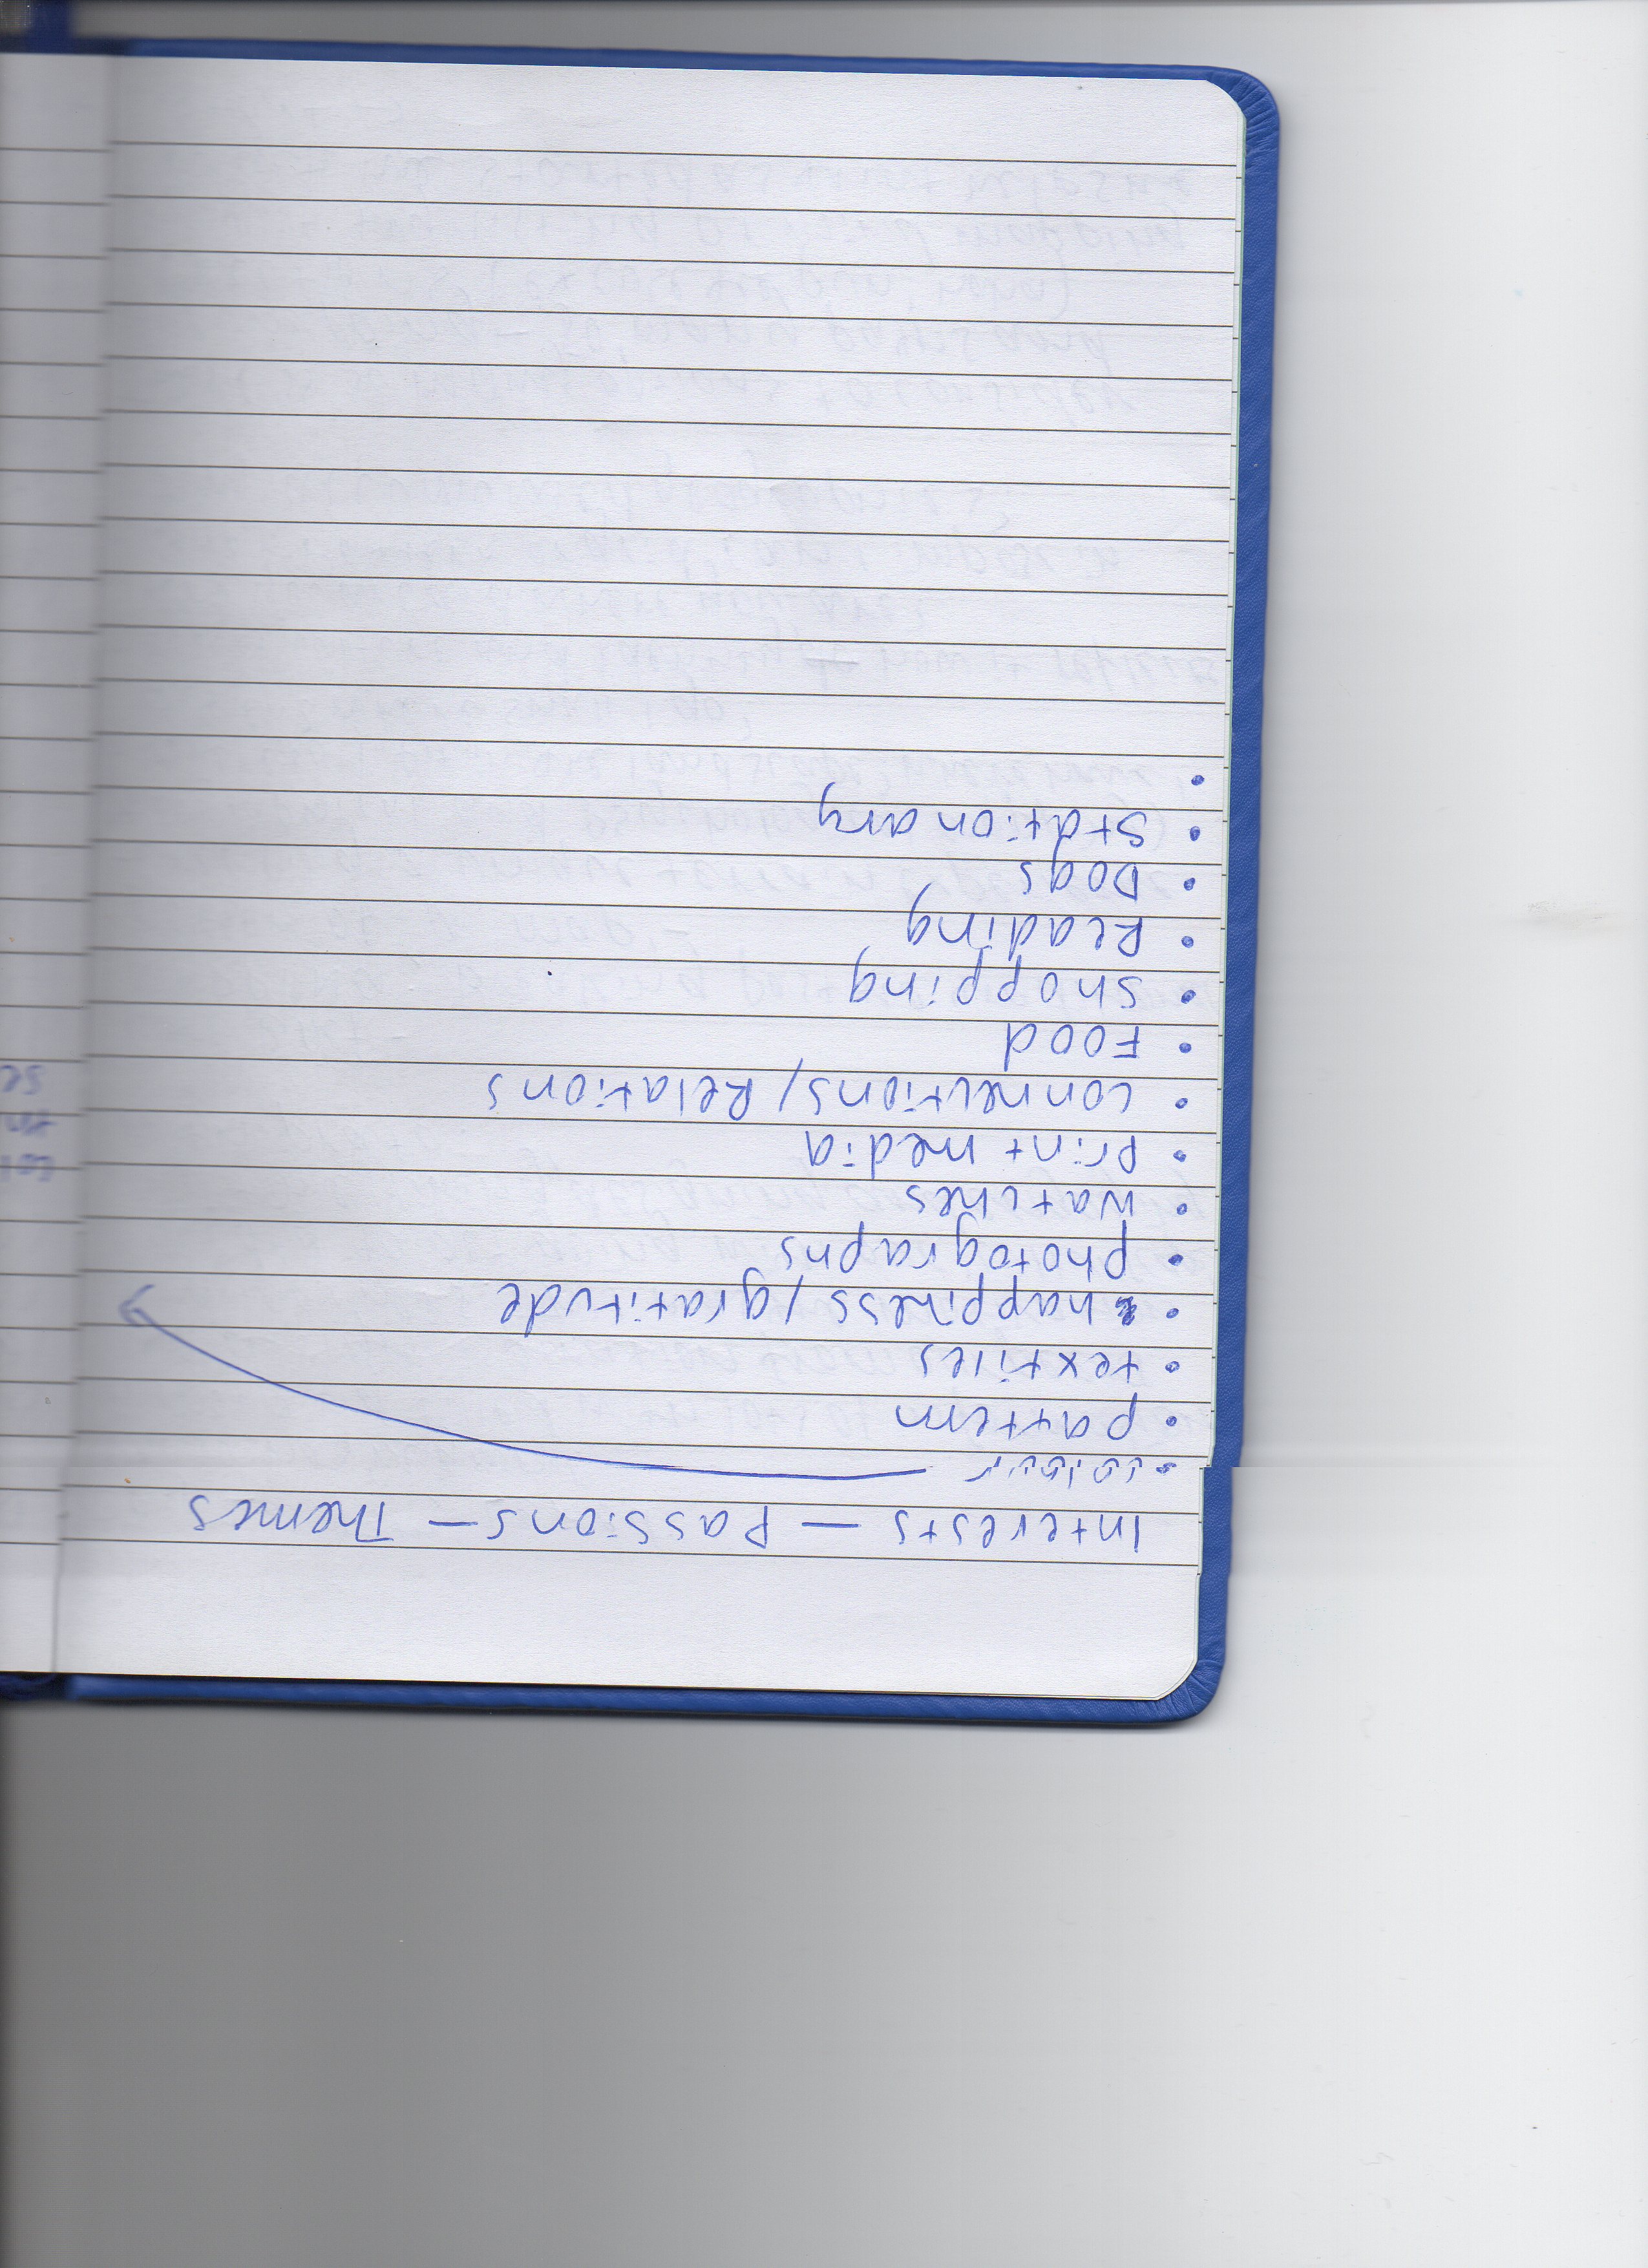 Interests — Passions — Themes
• colour
• pattern
• textiles
• happiness/gratitude
• photographs
• watches
• print media
• connections/Relations
• Food
• Shopping
• Reading
• Dogs
• Stationary
•